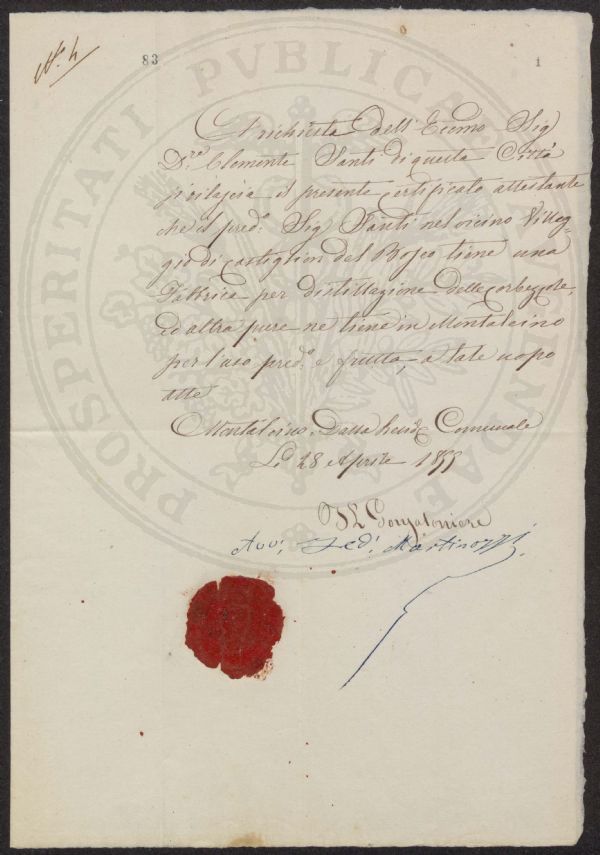 N.º 4
83
1
A richiesta dell' Ecc.mo Sig
D.re Clemente Santi di questa Città
si rilascia il presente certificato attestante
che il pred.º Sig Santi nel vicino Villag-
gio di Castiglion del Bosco tiene una
Fabbrica per distillazione delle corbezzole,
ed altra pure ne tiene in Montalcino
per l'uso pred.º e frutta, a tale uopo
atte
Montalcino. Dalla Resid.ª Comunale
Li 28 Aprile 1855
Il Gonfaloniere
Avv. Martinozzi
PROSPERITATI PVBLICAE AVGENDAE